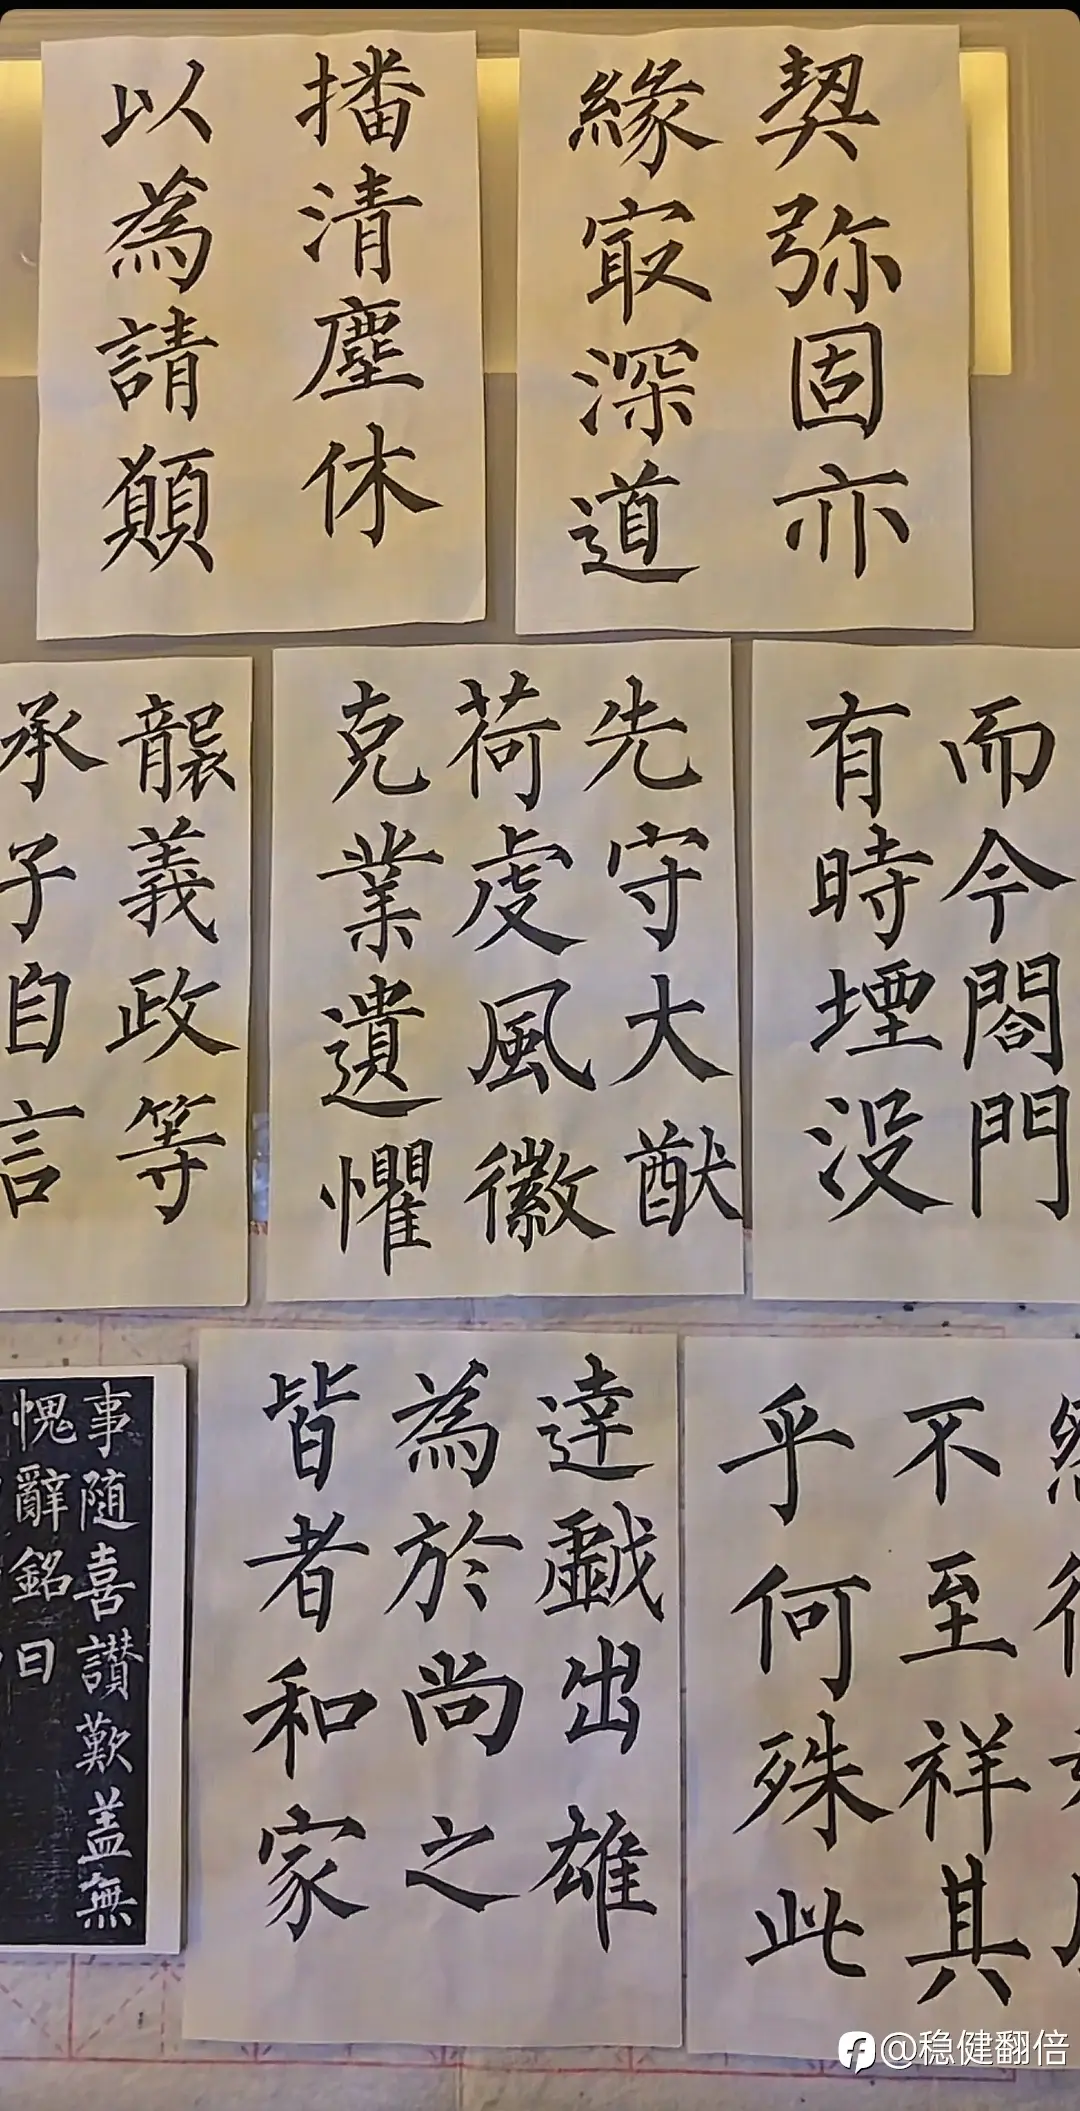 契弥固亦
緣㝡深道
播清塵休
以為請顛
而今閤門
有時堙没
先守大猷
荷虔風徽
克業遺懼
龔義政等
承子自言
不至祥其
乎何殊此
達戱出雄
為於尚之
皆者和家
事随喜讃歎盖無
愧辭銘曰
@稳健翻倍